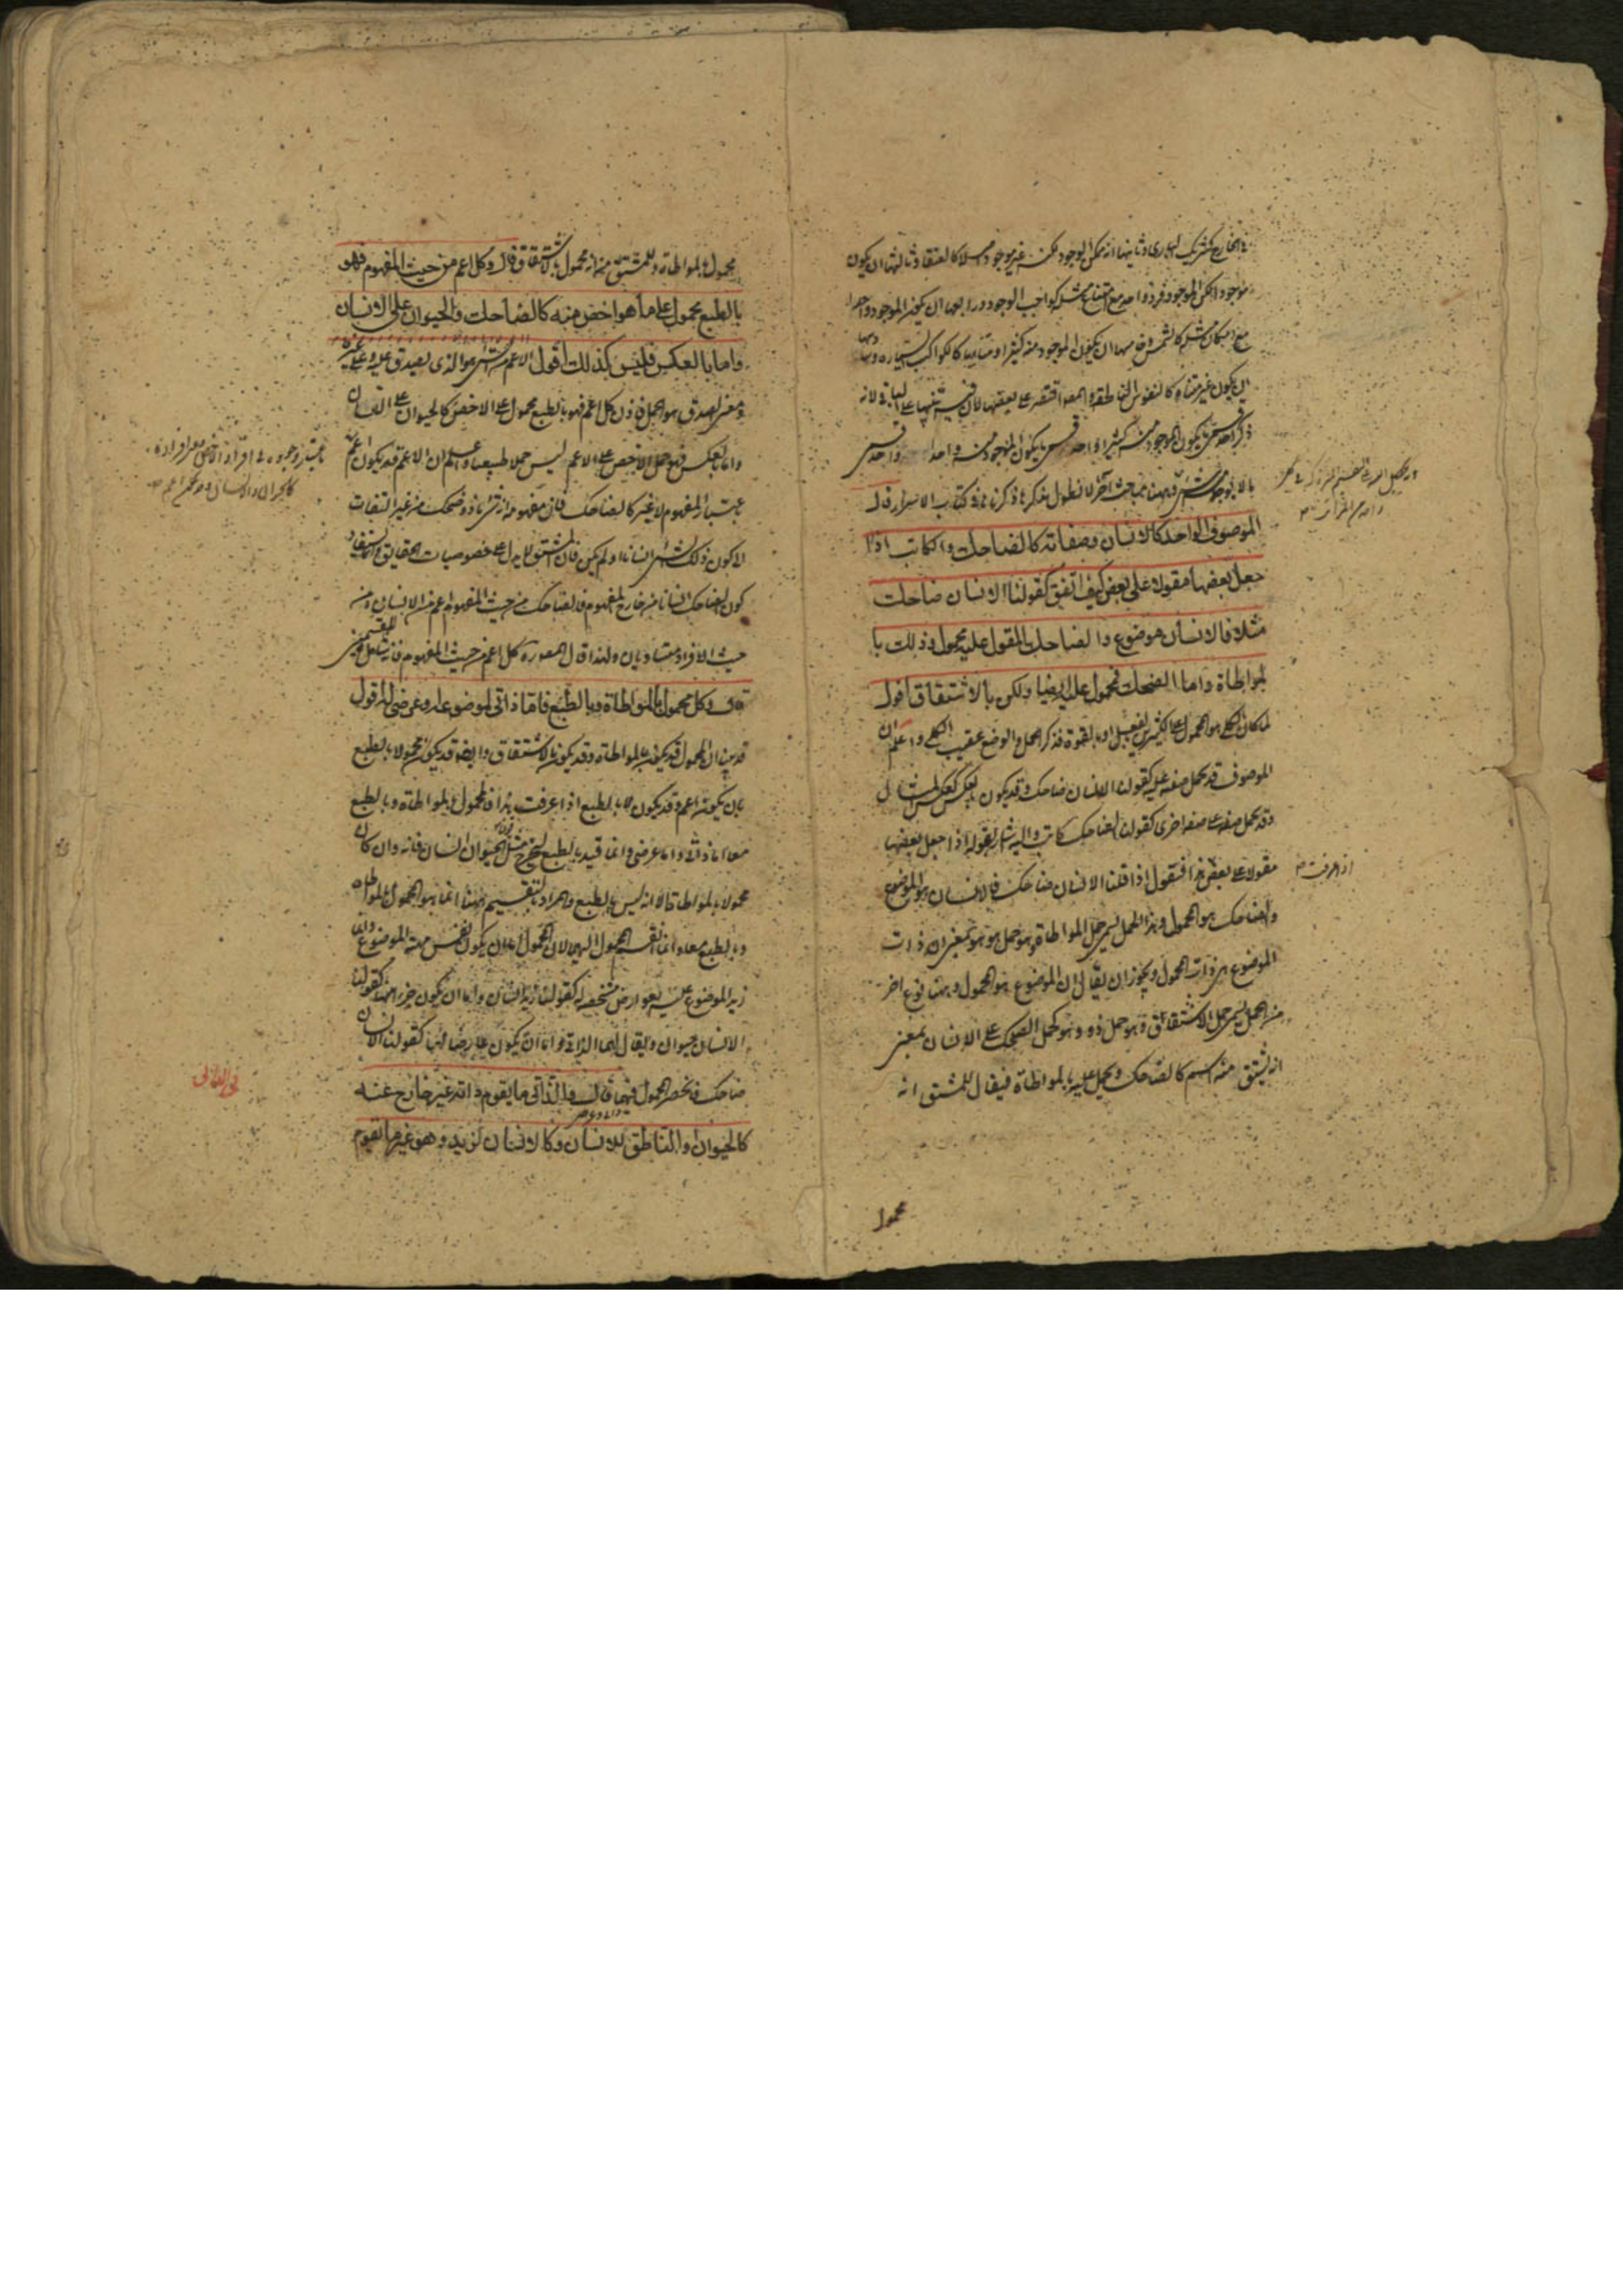 في الخارج كشريك الباري وثانيها انه ممكن الوجود لكنه غير موجود اصلا كالعنقاء وثالثها ان يكون
موجودا لكن الموجود فرد واحد مع امتناع مثله كواجب الوجود ورابعها ان يكون الموجود واحدا
مع امكان مثله كالشمس وخامسها ان يكون الموجود منه كثيرا متناهيا كالكواكب السيارة ومنها
ان يكون غير متناه كالنفوس الناطقة والمص اقتصر على بعضها لان فيه تنبيها على الباقي لانه
ذكر احد قسمي ما يكون الموجود منه كثيرا واحد قسمي ما يكون الموجود منه واحدا واحد قسمي
ما لا يوجد منه شيء وههنا مباحث اخر لا نطول بذكرها ذكرناها في كتاب الاسرار قال
الموصوف الواحد كالانسان وصفاته كالضاحك والكاتب اذا
جعل بعضها مقولا على بعض كيف اتفق كقولنا الانسان ضاحك
مثلا فالانسان موضوع والضاحك المقول عليه محمول وذلك با
لمواطاة واما الضحك فمحمول عليه ايضا ولكن بالاشتقاق اقول
لما كان الكلي هو المحمول على كثيرين بالفعل او بالقوة فذكر الحمل والوضع عقيب الكلي واعلم ان
الموصوف قد يحمل صفته عليه كقولنا الانسان ضاحك وقد يكون بالعكس كعكس المثال
وقد تحمل صفة على صفة اخرى كقولنا الضاحك كاتب واليه اشار بقوله اذا جعل بعضها
مقولا على بعض فنقول اذا قلنا الانسان ضاحك فالانسان هو الموضوع
والضاحك هو المحمول وهذا الحمل يسمى حمل المواطاة وهو حمل هو هو بمعنى ان ذات
الموضوع هي ذات المحمول ويجوز ان يقال ان الموضوع هو المحمول وههنا نوع اخر
من الحمل يسمى حمل الاشتقاق وهو حمل ذو هو كحمل الضحك على الانسان بمعنى
انه يشتق منه اسم كالضاحك ويحمل عليه بالمواطاة فيقال للمشتق انه
محمول
اذا عرفت
محمول بالمواطاة وللمشتق منه انه محمول بالاشتقاق قال وكل اعم من حيث المفهوم فهو
بالطبع محمول على ما هو اخص منه كالضاحك والحيوان على الانسان
واما بالعكس فليس كذلك اقول الاعم من الشيء هو الذي يصدق عليه وعلى غيره
ومعنى الصدق هو الحمل فاذن كل اعم فهو بالطبع محمول على الاخص كالحيوان على الانسان
واما بالعكس فهو حمل الاخص على الاعم ليس حملا طبيعيا واعلم ان الاعم قد يكون اعم
باعتبار المفهوم لا غير كالضاحك فان مفهومه انه شيء ما ذو ضحك من غير التفات
الى كون ذلك الشيء انسانا او لم يكن فان المشتق لا يدل على خصوصيات الحقايق وانما يستفاد
كون الضاحك انسانا من خارج المفهوم فالضاحك من حيث المفهوم اعم من الانسان ومن
حيث الافراد متساويان ولهذا قال المص وكل اعم من حيث المفهوم فانه شامل للقسمين
قال وكل محمول بالمواطاة وبالطبع فاما ذاتي لموضوعه او عرضي له اقول
قد بين ان المحمول قد يكون بالمواطاة وقد يكون بالاشتقاق وايضا قد يكون محمولا بالطبع
بان يكون اعم وقد يكون لا بالطبع اذا عرفت هذا فالمحمول بالمواطاة وبالطبع
معا اما ذاتي واما عرضي وانما قيد بالطبع ليخرج مثل قولنا الحيوان انسان فانه وان كان
محمولا بالمواطاة الا انه ليس بالطبع والمراد بالتقسيم ههنا انما هو المحمول بالمواطاة
وبالطبع معا وانما انقسم المحمول اليهما لان المحمول اما ان يكون نفس مهية الموضوع وانما
زيد الموضوع عليه بعوارض مشخصة له كقولنا زيد انسان واما ان يكون جزء منها كقولنا
الانسان حيوان ويقال لهما الذاتي واما ان يكون عارضا لها كقولنا الانسان
ضاحك فانحصر المحمول فيهما قال والذاتي ما يقوم ذاته غير خارج عنه
كالحيوان والناطق للانسان وكالانسان لزيد وهو غير ما يقوم
باعتبار وجوده في افراد الاخص مع افراده
كالحيوان والانسان